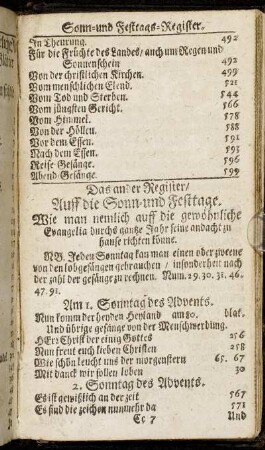 Sonn-und Festtags-Register.
In Theurung. 492
Für die Früchte des Landes/ auch um Regen und
Sonnenschein 492
Von der christlichen Kirchen. 499
Vom menschlichen Elend. 521
Vom Tod und Sterben. 544
Vom jüngsten Gericht. 566
Vom Himmel. 578
Von der Höllen. 588
Vor dem Essen. 591
Nach dem Essen. 593
Reise Gesänge. 596
Abend Gesänge. 599
Das ander Register/
Auff die Sonn-und Festtage.
Wie man nemlich auff die gewöhnliche
Evangelia durchs gantze Jahr seine andacht zu
hause richten könne.
NB. Jeden Sonntag kan man einen oder zweene
von den lobgesängen gebrauchen / insonderheit nach
der zahl der gesänge zu rechnen. Num. 29. 30. 31. 46.
47. 91.
Am 1. Sonntag des Advents.
Nun komm der heyden Heyland am 80. blat.
Und übrige gesänge von der Menschwerdung.
HErr Christ der einig Gottes 256
Nun freut euch lieben Christen 258
Wie schön leucht uns der morgenstern 65. 67
Mit danck wir sollen loben 30
2. Sonntag des Advents.
Es ist gewißlich an der zeit 567
Es sind die zeichen nunmehr da 571
Cc 7 Und